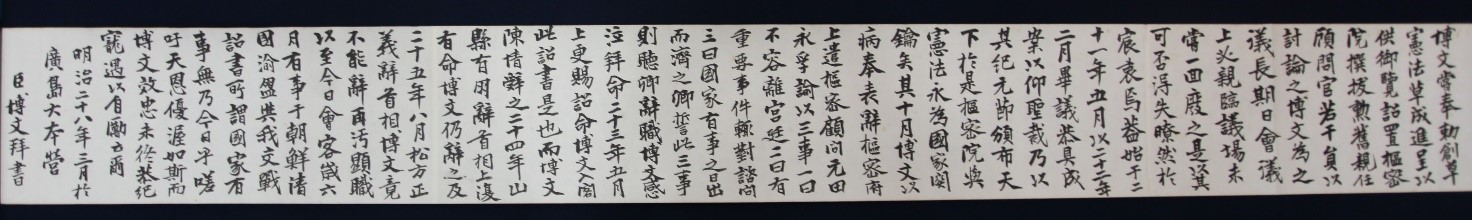 博文嘗奉勅創草
憲法草成進呈以
供御覽詔置樞密
院撰拔勲舊親任
顧問官若干員以
討論之博文為之
議長期日會議
上必親臨議場未
嘗一回廢之是以其
可否得失瞭然於
宸衷焉蓋始于二
十一年五月以二十二年
二月畢議恭具成
案以仰聖裁乃以
其紀元節頒布天
下於是樞密院與
憲法永為國家関
鑰矣其十月博文以
病奉表辭樞密府
上遣樞密顧問元田
永孚諭以三事一曰
不容離宮廷二曰有
重要事件輙對諮問
三曰國家有事之日出
而濟之卿誓此三事
則聴卿辭職博文感
泣拜命二十三年五月
上更賜詔命博文入閣
此詔書是也而博文
陳情辭之二十四年山
縣有朋辭首相上復
有命博文仍辭之及
二十五年八月松方正
義辭首相博文竟
不能辭再汚顯職
以至今日會客歳六
月有事于朝鮮清
國渝盟與我交戰
詔書所謂國家有
事無乃今日乎嗟
吁天恩優渥如斯而
博文效忠未終茲紀
寵遇以自勵云爾
明治二十八年三月於
廣島大本營
臣博文拜書